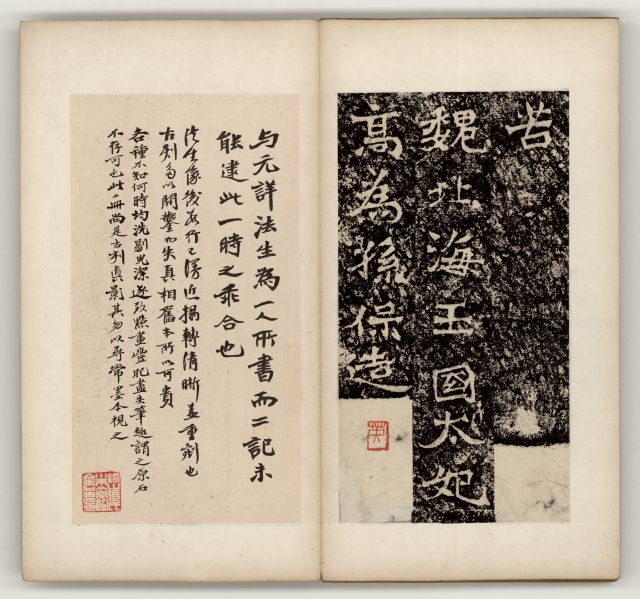 苦
魏北海王國太妃
高為孫保造
与元詳法生為一人所書而二記未
能逮此一時之乖合也
法生像後数行已漫近搨轉清晰蓋重剜也
古刻多以開鑿而失真相舊本所以可貴
各種不知何時均洗剔光潔遂致點畫豐肥盡失筆趣謂之原石
不存可也此二冊尚是古刹真影其勿以尋常墨本視之